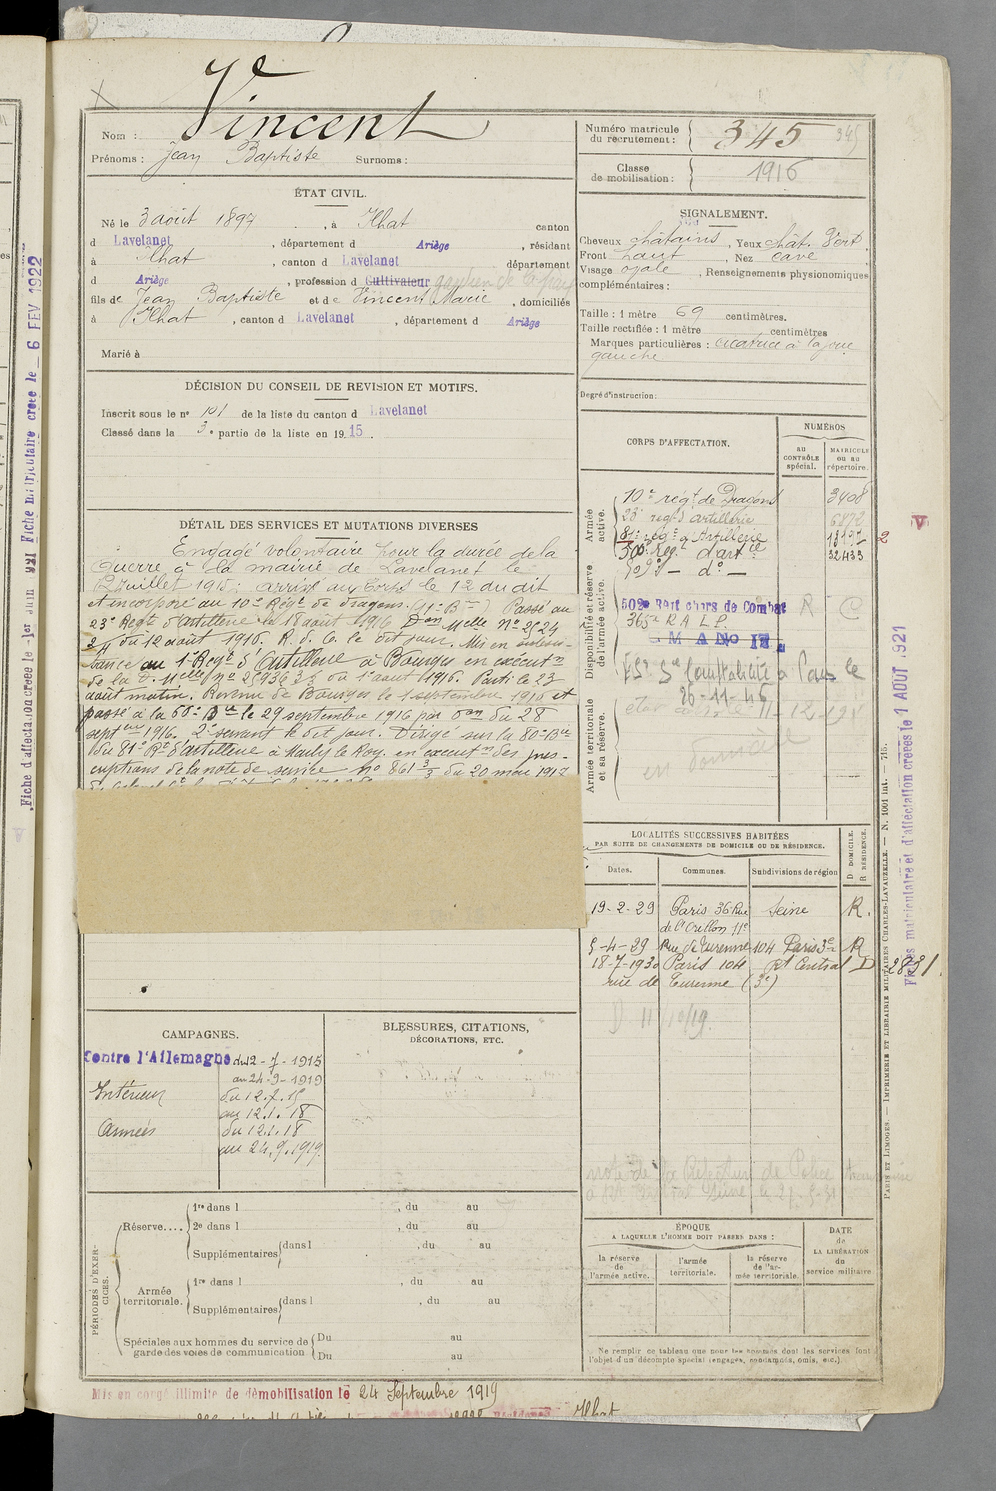 Nom : Vincent
Prénoms : Jean Baptiste Surnoms :
Numéro matricule du recrutement : 345
345
Classe de mobilisation : 1916
ÉTAT CIVIL.
Né le 3 août 1897, à Ilhat canton
d Lavelanet, département d Ariège, résidant
à Ilhat, canton d Lavelanet département
d Ariège, profession d Cultivateur gardien de la paix
fils de Jean Baptiste et de Vincent Marie, domiciliés
à Ilhat, canton d Lavelanet, département d Ariège
Marié à
SIGNALEMENT.
Cheveux châtains, Yeux chât. Vert.
Front haut, Nez cave
Visage ovale, Renseignements physionomiques
complémentaires :
Taille : 1 mètre 69 centimètres.
Taille rectifiée : 1 mètre centimètres
Marques particulières : cicatrice à la joue
gauche
Degré d'instruction :
DÉCISION DU CONSEIL DE REVISION ET MOTIFS.
Inscrit sous le nº 101 de la liste du canton d Lavelanet
Classé dans la 3e partie de la liste en 1915.
DÉTAIL DES SERVICES ET MUTATIONS DIVERSES
Engagé volontaire pour la durée de la
guerre à la mairie de Lavelanet le
juillet 1915; arrivé au Corps le 12 du dit
et incorporé au 10e Régt de dragons. (11e Bie) Passé au
23e Régt d'artillerie le 18 août 1916 Don Melle Nº 2524
du 12 août 1916. R. d. C. le dit jour. Mis en
au 1er Régt d'Artillerie à Bourges en exécutn
de la d. Melle nº 269363 du 1er août 1916. Parti le 23
août matin. Revenu de Bourges le 1 septembre 1916 et
passé à la 60e Bie le 29 septembre 1916 par Don du 28
septembre 1916. 2e servant le dit jour. Dirigé sur la 80e Bie
du 81e Rt d'artillerie à Marly le Roy. en exécutn des pres-
criptions de la note de service nº 861 3/3 du 20 mai 1917
CORPS D'AFFECTATION.
NUMÉROS
au CONTRÔLE spécial.
MATRICULE ou au répertoire.
Armée active.
10e régt de Dragons 3408
23e régt d'artillerie 6872
81e régt d'Artillerie
500e Régt d'artie 32433
505e — do —
Disponibilité et réserve de l'armée active.
502e Regt chars de Combat
365e R A L P.
26-11-46
11-12-
Armée territoriale et sa réserve.
LOCALITÉS SUCCESSIVES HABITÉES
PAR SUITE DE CHANGEMENTS DE DOMICILE OU DE RÉSIDENCE.
Dates. Communes. Subdivisions de région
D DOMICILE. R RÉSIDENCE.
19-2-29 Paris 36 Rue Seine R.
de l'Orillon 11e
5-4-29 Rue de Turenne 104 Paris 3e R
18-7-1930 Paris 104 Rt Central D 2831
rue de Turenne (3e)
CAMPAGNES.
Contre l'Allemagne du 12-7-1915
au 24-9-1919
Intérieur du 12.7.15
au 12.1.18
Armées du 12.1.18
au 24.9.1919.
BLESSURES, CITATIONS,
DÉCORATIONS, ETC.
PÉRIODES D'EXERCICES.
Réserve....
1re dans l , du au
2e dans l , du au
Supplémentaires dans l , du au
Armée territoriale.
1re dans l , du au
Supplémentaires dans l , du au
Spéciales aux hommes du service de garde des voies de communication
Du au
Du au
ÉPOQUE
A LAQUELLE L'HOMME DOIT PASSER DANS :
la réserve de l'armée active.
l'armée territoriale.
la réserve de l'armée territoriale.
DATE de LA LIBÉRATION du service militaire
Ne remplir ce tableau que pour les hommes dont les services font
l'objet d'un décompte spécial (engagés, condamnés, omis, etc.)
Mis en congé illimité de démobilisation le 24 Septembre 1919
Ilhat
Fiche d'affectation créée le 1er Juin 1921 Fiche matriculaire créée le 6 FEV 1922
Fiches matriculaire et d'affectation créées le 1 AOUT 1921
PARIS ET LIMOGES. — IMPRIMERIE ET LIBRAIRIE MILITAIRES CHARLES-LAVAUZELLE. — N. 1001 int. — 715.